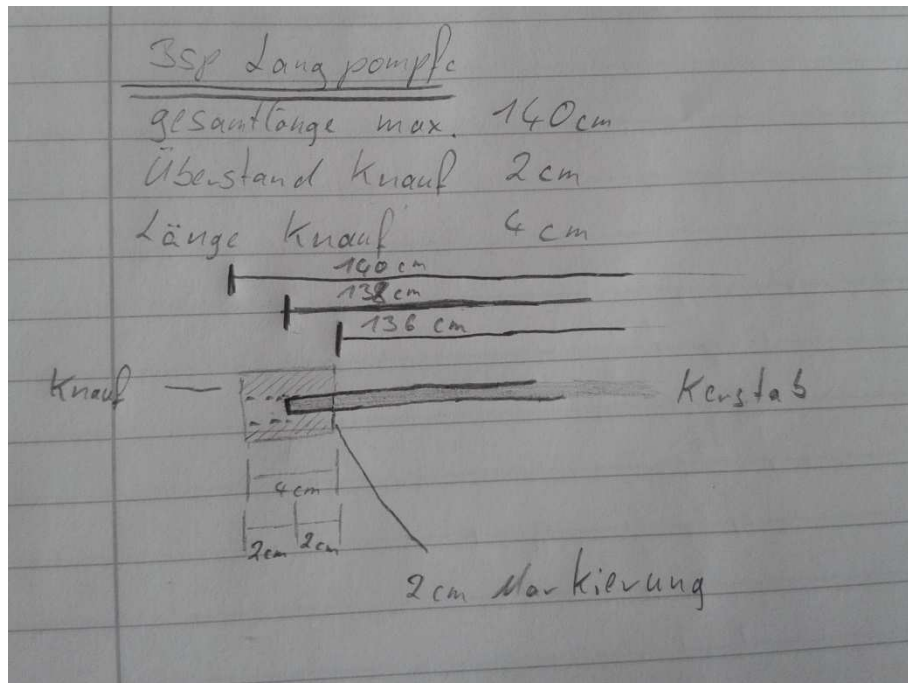 Bsp Langpompfe
gesamtlänge max. 140cm
Überstand Knauf 2cm
Länge Knauf 4cm
140cm
138cm
136 cm
Knauf
Kernstab
4cm
2cm 2cm
2cm Markierung